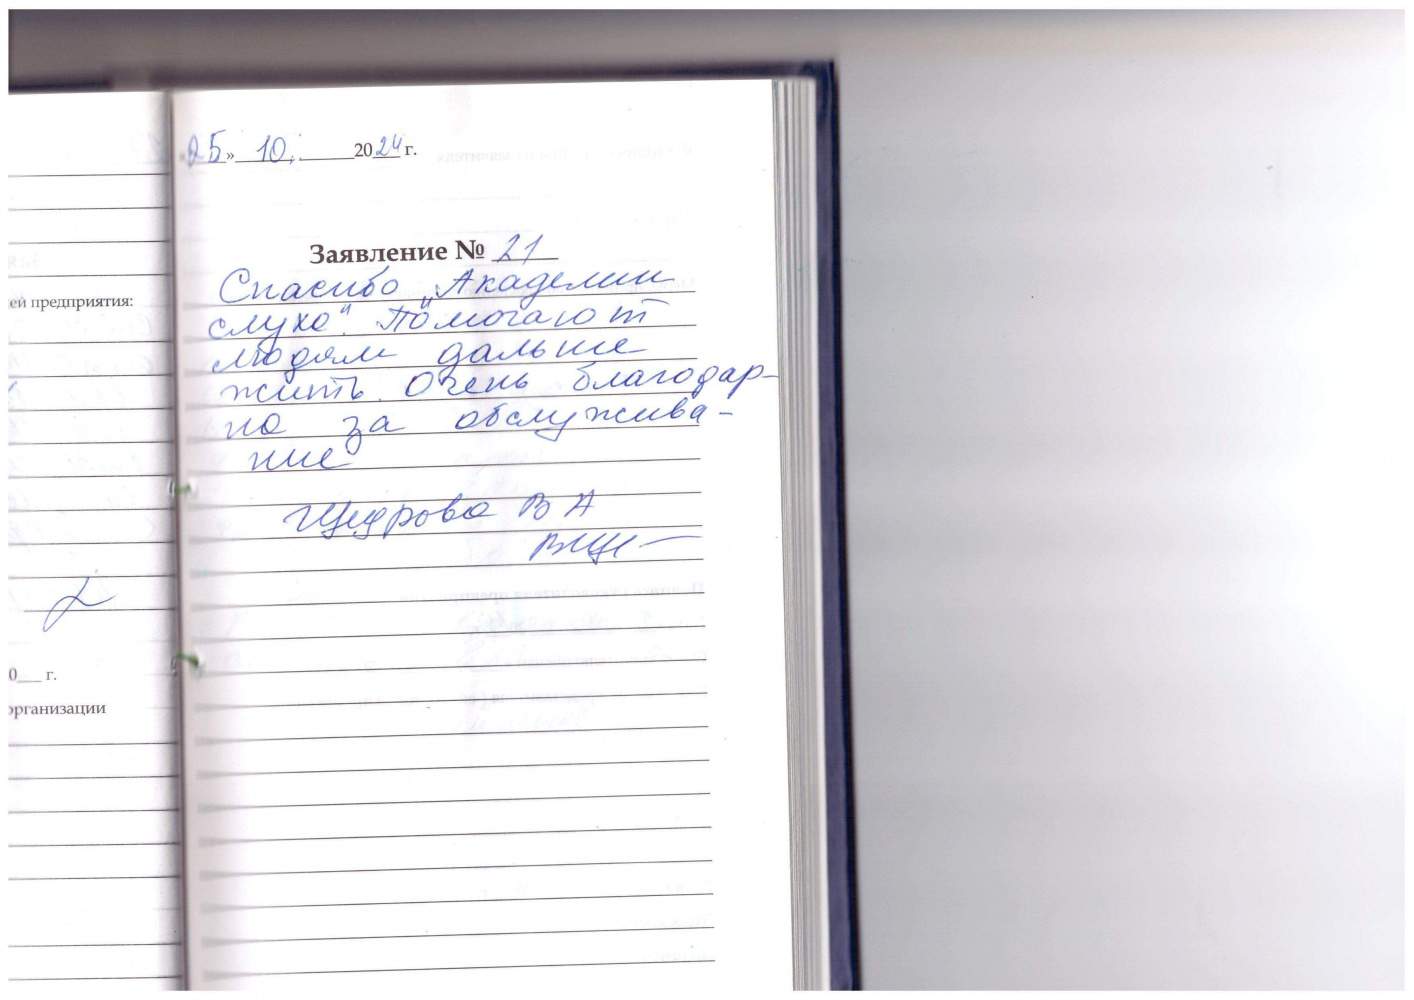 ей предприятия:
0___ г.
организации
«25» 10. 2024 г.
Заявление № 21
Спасибо „Академии
слуха". Помогают
людям дальше
жить. Очень благодар-
на за обслужива-
ние
Щедрова В А